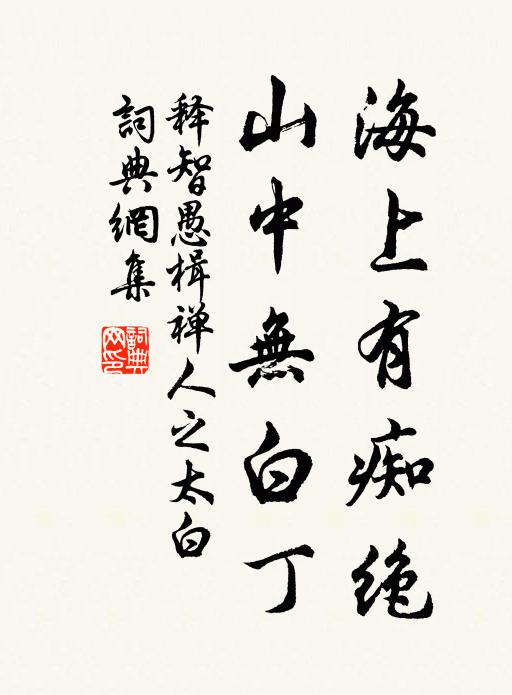 海上有痴绝
山中無白丁
释智愚楫禅人之太白
詞典網集
詞典网印